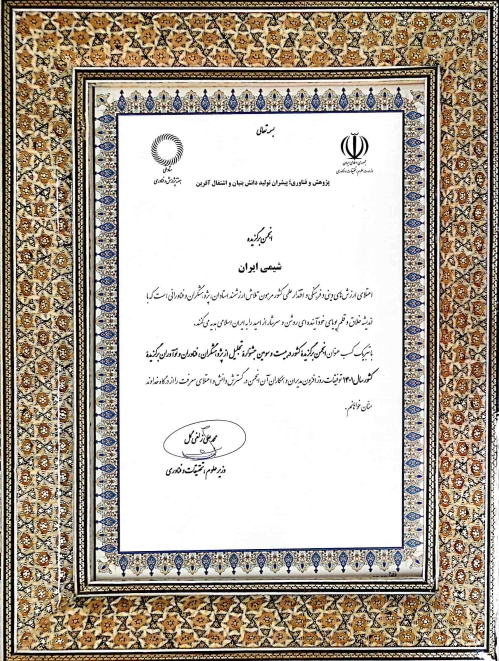 بسمه تعالی
جمهوری اسلامی ایران
وزارت علوم، تحقیقات و فناوری
ستاد ملی
هفته پژوهش و فناوری
پژوهش و فناوری؛ پیشران تولید دانش بنیان و اشتغال آفرین
انجمن برگزیده
شیمی ایران
اعتلای ارزش‌های دینی و فرهنگی و اقتدار علمی کشور مرهون تلاش ارزشمند استادان، پژوهشگران و فناورانی است که با
اندیشه خلاق و قلم پویای خود آینده‌ای روشن و سرشار از امید را به ایران اسلامی هدیه می‌کنند.
با تبریک کسب عنوان انجمن برگزیده کشور در بیست و سومین جشنواره تجلیل از پژوهشگران، فناوران و نوآوران برگزیده
کشور سال ۱۴۰۱ توفیقات روزافزون مدیران و همکاران آن انجمن در گسترش دانش و اعتلای معرفت را از درگاه خداوند
منان خواهانم.
محمدعلی زلفی گل
وزیر علوم، تحقیقات و فناوری